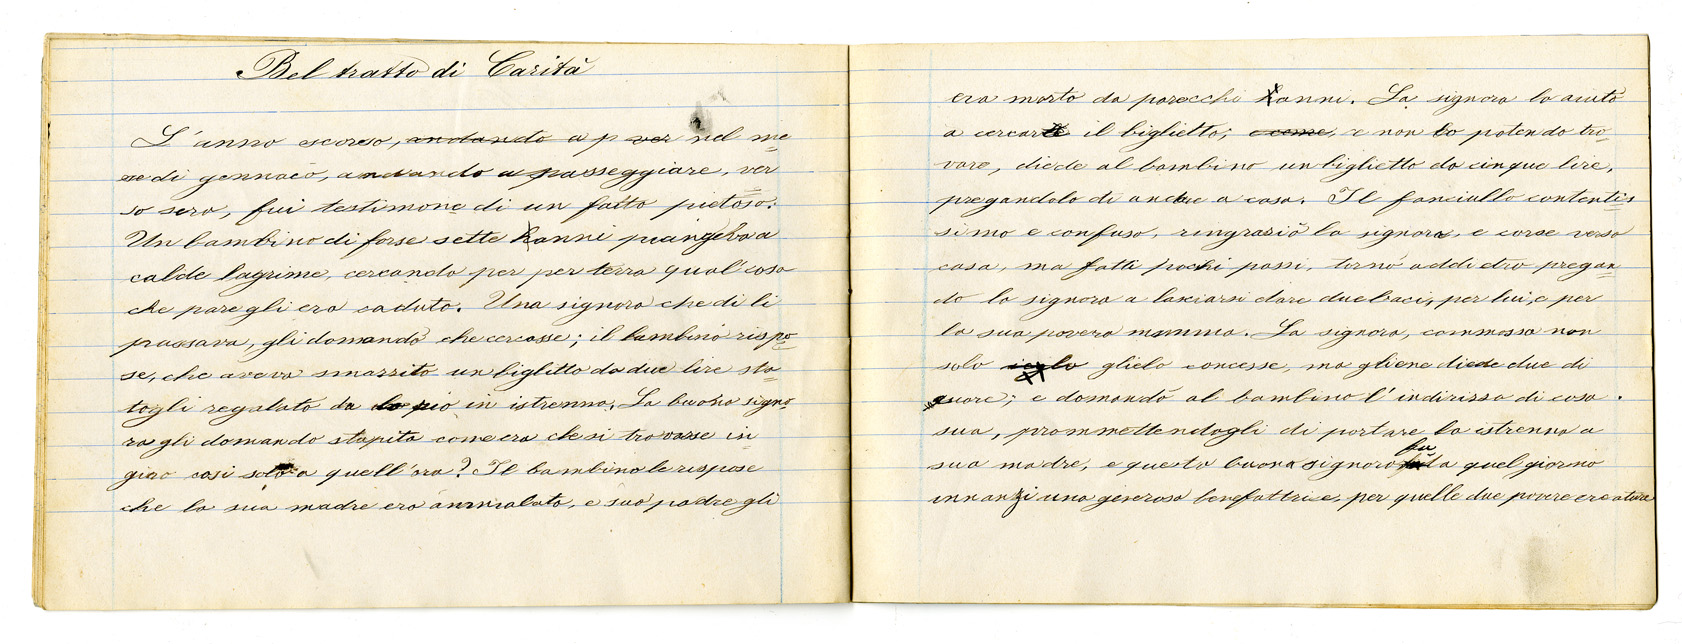 Bel tratto di Carità
L'anno scorso, andando a p ver nel me
se di gennaio, andando a passeggiare, ver
so sera, fui testimone di un fatto pietoso.
Un bambino di forse sette hanni piangeva a
calde lagrime, cercando per per terra qual cosa
che pare gli era caduto. Una signora che di li
passava, gli domandò che cercasse; il bambino rispo
se, che aveva smarrito un biglitto da due lire sta
togli regalato da lo pio in istrenna. La buona signo
ra gli domando stupita come era che si trovasse in
giro cosi solo a quell'ora? Il bambino le rispose
che la sua madre era ammalata, e suo padre gli
era morto da parecchi hanni. La signora lo aiutò
a cercare il biglietto; e come, e non lo potendo tro
vare, diede al bambino un biglietto da cinque lire,
pregandolo di andare a casa. Il fanciullo contentis
simo e confuso, ringraziò la signora, e corse verso
casa, ma fatti pochi passi, tornò addietro pregan
do la signora a lasciarsi dare due baci, per lui, e per
la sua povera mamma. La signora, commossa non
solo glielo concesse, ma gliene diede due di
cuore; e domandò al bambino l'indirizzo di casa
sua, promettendogli di portare la istrenna a
sua madre, e questa buona signora fu da quel giorno
innanzi una generosa benefattrice, per quelle due povere creature